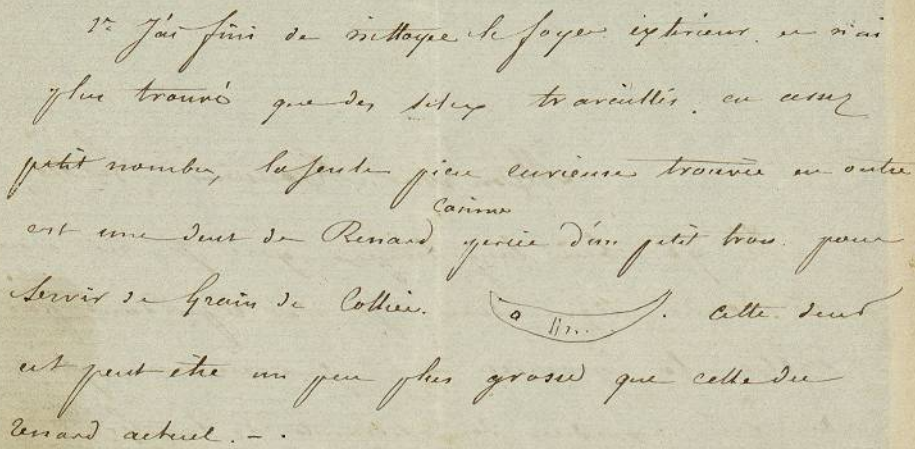 1° J'ai fini de nettoyer le foyer extérieur. et n'ai
plus trouvé que des silex travaillés. en assez
petit nombre, la seule pièce curieuse trouvée en outre
canine
est une dent de Renard, percée d'un petit trou. pour
servir de Grain de Collier. cette dent
est peut être un peu plus grosse que celle du
renard actuel. - .